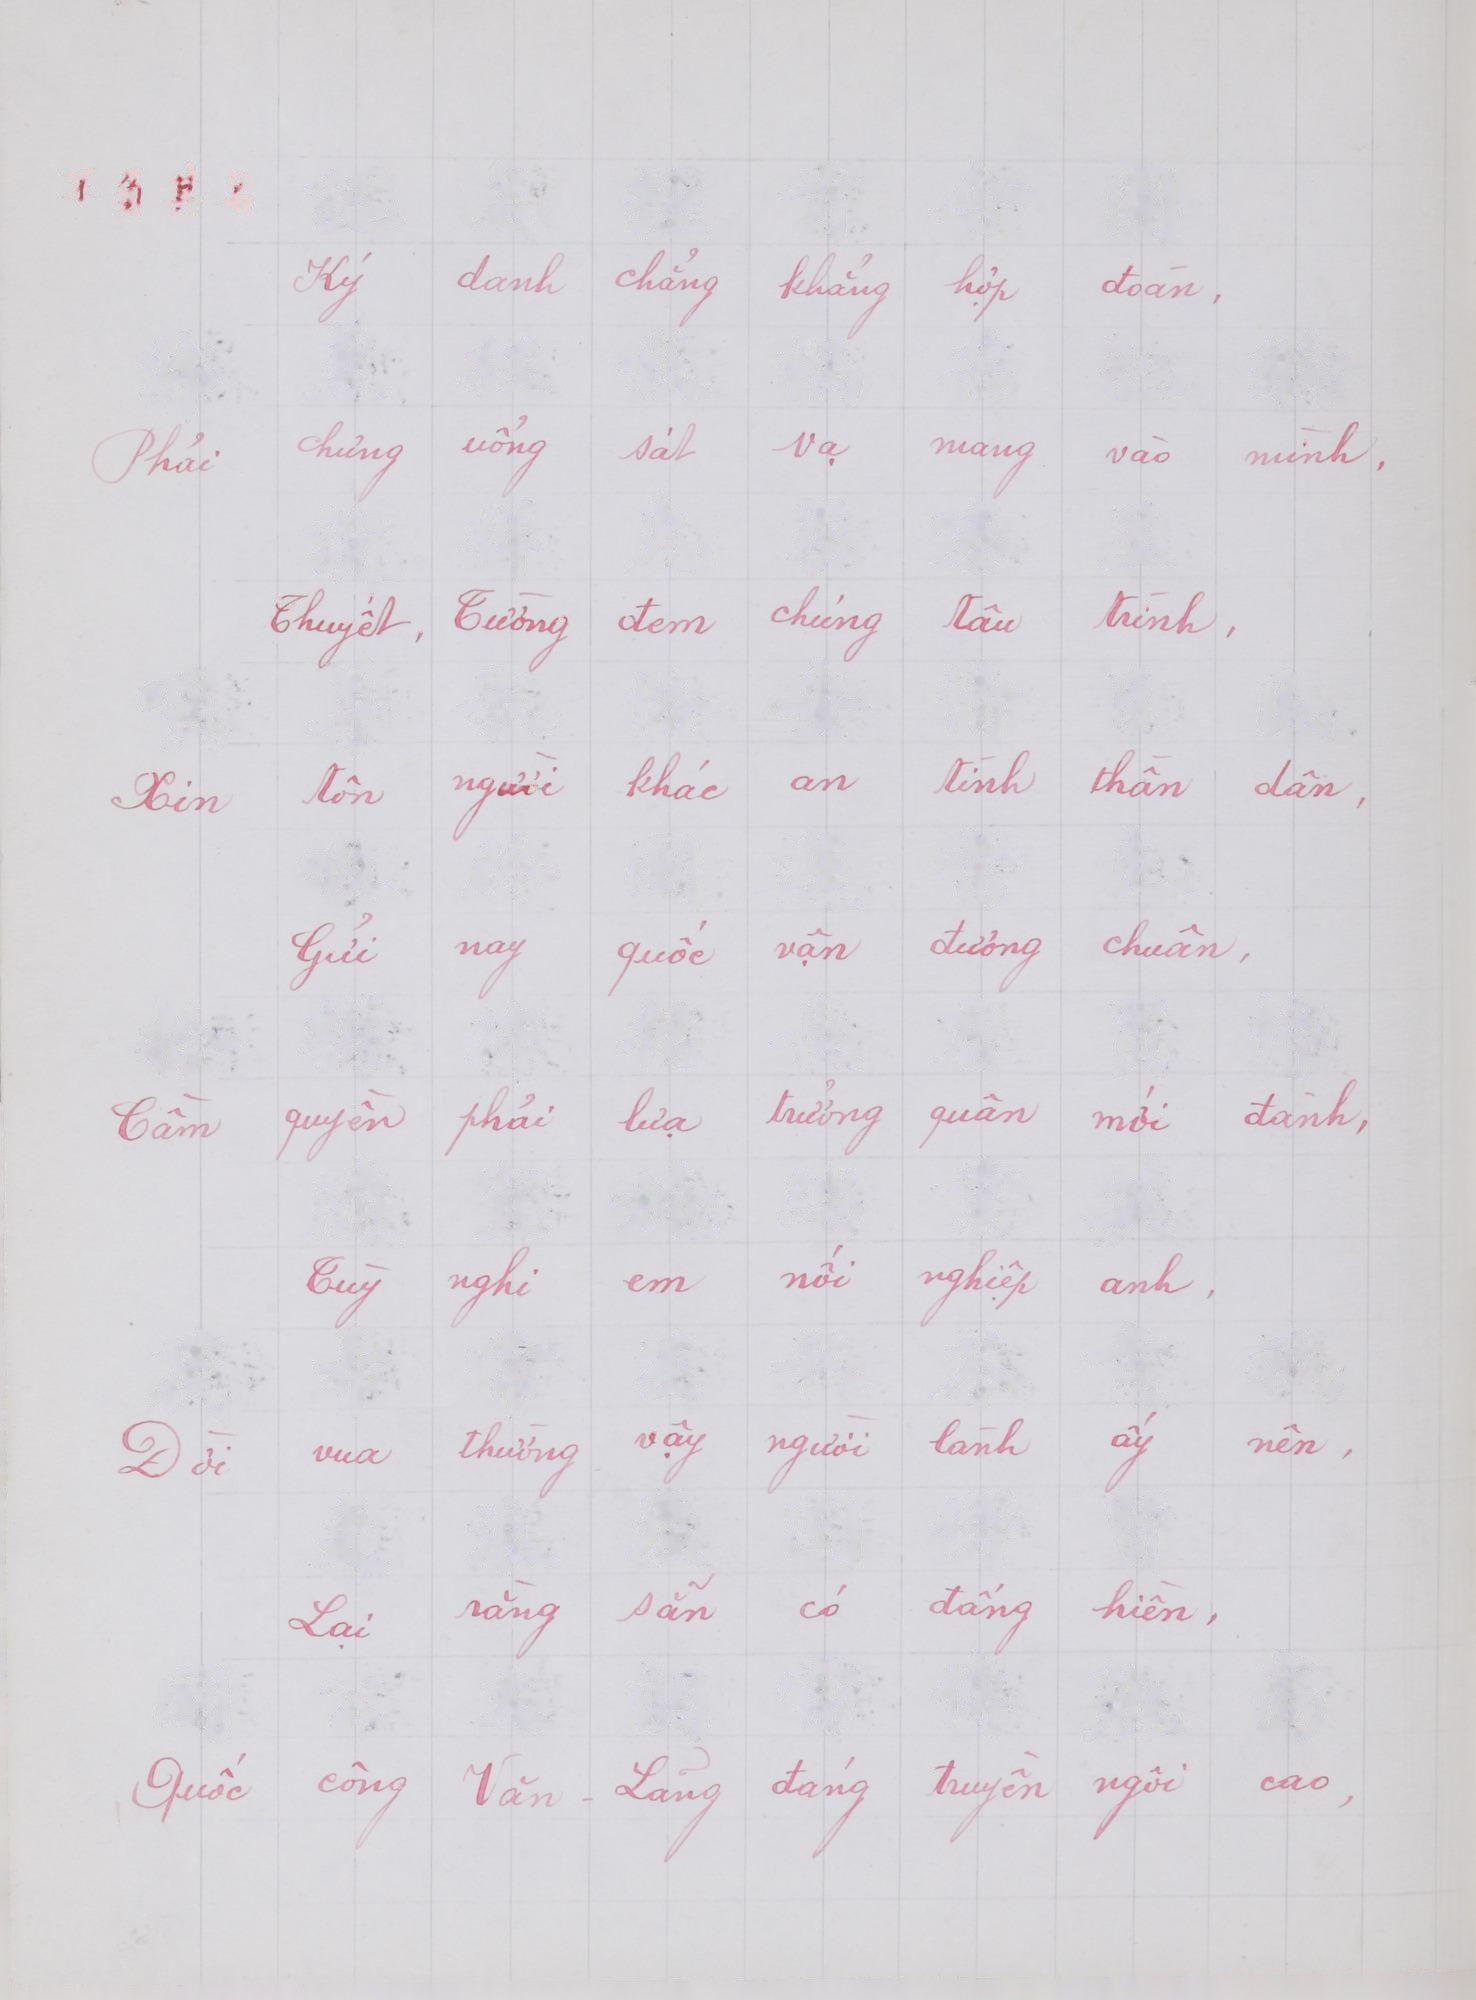 Ký danh chẳng khẳng hợp đoàn,
Phải chừng uổng sát vạ mang vào mình,
Thuyết, Tường đem chúng tâu trình,
Xin tôn người khác an tình thần dân,
Gửi nay quốc vận đương chuân,
Cầm quyền phải lựa trưởng quân mới đành,
Tuỳ nghi em nối nghiệp anh,
Dòi vua thường vậy người lành ấy nên,
Lại rằng sẵn có đấng hiền,
Quốc công Văn-Lãng đáng truyền ngôi cao,